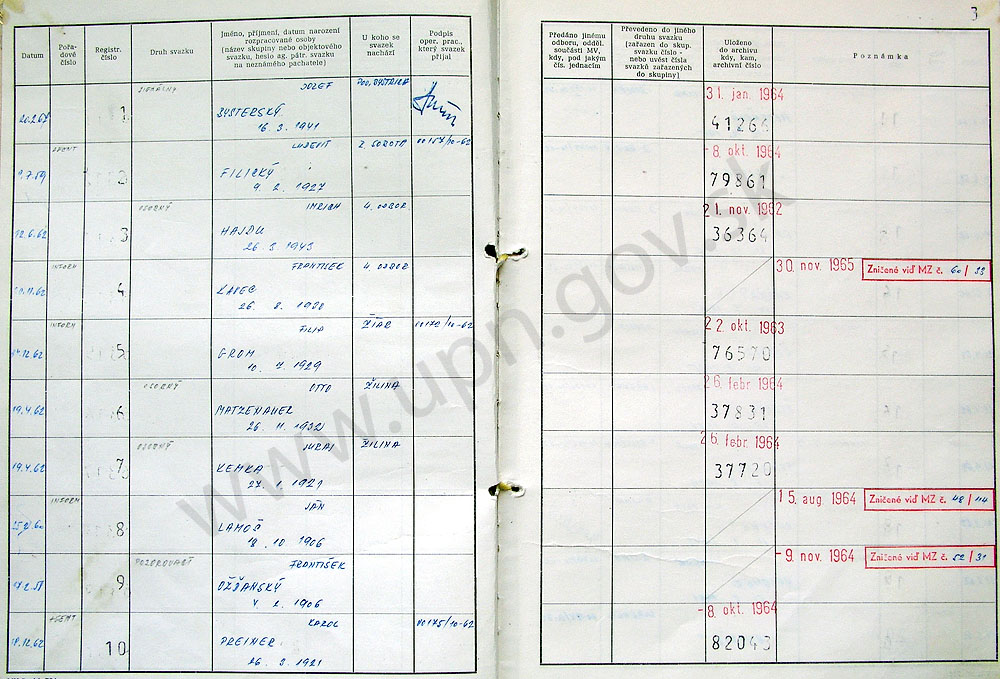 3
Datum
Pořa-
dové
číslo
Registr.
číslo
Druh svazku
Jméno, příjmení, datum narození
rozpracované osoby
(název skupiny nebo objektového
svazku, heslo ag. pátr. svazku
na neznámého pachatele)
U koho se
svazek
nachází
Podpis
oper. prac.,
který svazek
přijal
Předáno jinému
odboru, odděl.
součásti MV,
kdy, pod jakým
čís. jednacím
Převedeno do jiného
druhu svazku
(zařazen do skup.
svazku číslo -
nebo uvést čísla
svazků zařazených
do skupiny)
Uloženo
do archivu
kdy, kam,
archivní číslo
Poznámka
JOZEF
POV. BYSTRICA
31. jan. 1964
1
BYSTERSKÝ
41266
16. 3. 1941
ĽUDEVIT
R. SOBOTA
00157/10-62
-8. okt. 1964
9.7.59
2
FILICKÝ
79861
9. 2. 1927
OSOBNÝ
IMRICH
4. ODBOR
21. nov. 1962
12.6.62
3
HAJDU
36364
26. 3. 1943
INFORM
FRANTIŠEK
4. ODBOR
30. nov. 1965
Zničené viď MZ č. 60/33
4
26. 8. 1920
INFORM
FILIP
ŽIAR
00172/10-62
22. okt. 1963
14.12.62
5
GROM
76570
10. 7. 1929
OSOBNÝ
OTTO
ŽILINA
26. febr 1964
19.4.62
6
MATZENAUER
37831
26. 11. 1932
OSOBNÝ
JURAJ
ŽILINA
26. febr. 1964
19.4.62
7
KEMKA
37720
27. 1. 1921
INFORM
JÁN
15. aug. 1964
Zničené viď MZ č. 48/114
8
LAMOŠ
18. 10. 1906
POZOROVACÍ
FRANTIŠEK
-9. nov. 1964
Zničené viď MZ č. 52/31
9
OŽĎANSKÝ
AGENT
KAROL
00175/10-62
-8. okt. 1964
18.12.62
10
PREINER
82043
26. 3. 1921
www.upn.gov.sk